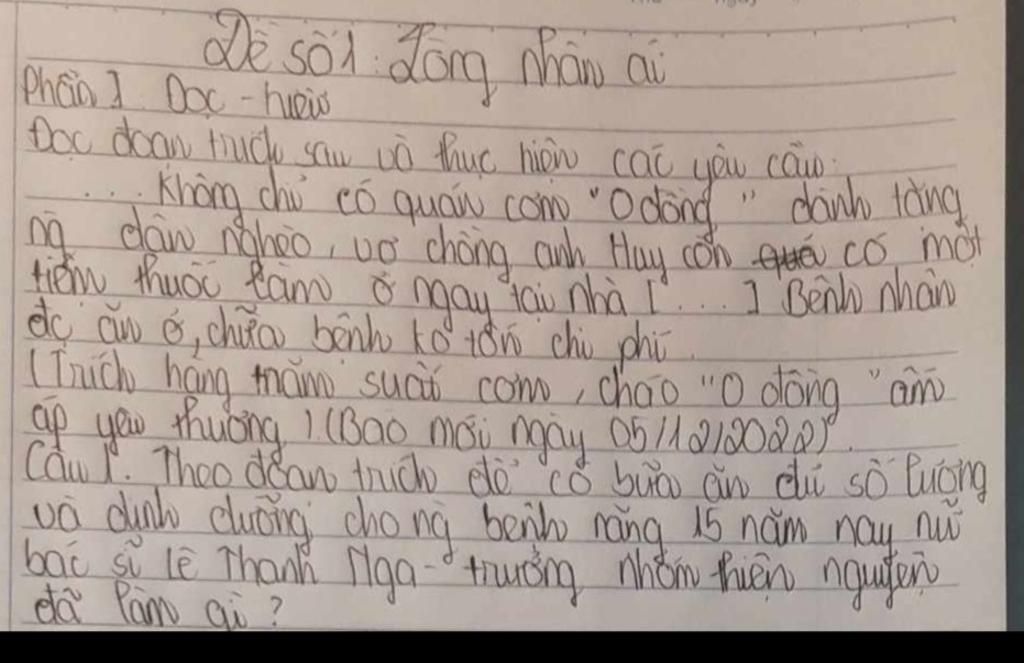 Đề số 1: Lòng nhân ái
Phần I Đọc - hiểu
Đọc đoạn trích sau và thực hiện các yêu cầu:
.... Không chỉ có quán cơm "0 đồng" dành tặng
ng dân nghèo, vợ chồng anh Huy còn quá có một
tiệm thuốc làm ở ngay tại nhà [....] Bệnh nhân
đc ăn ở, chữa bệnh ko tốn chi phí.
(Trích hàng trăm suất cơm, cháo "0 đồng" ấm
áp yêu thương) (Báo mới ngày 05/12/2022).
Câu 1. Theo đoạn trích để có bữa ăn đủ số lượng
và dinh dưỡng cho ng bệnh ròng 15 năm nay nữ
bác sĩ Lê Thanh Nga - trưởng nhóm thiện nguyện
đã làm gì?